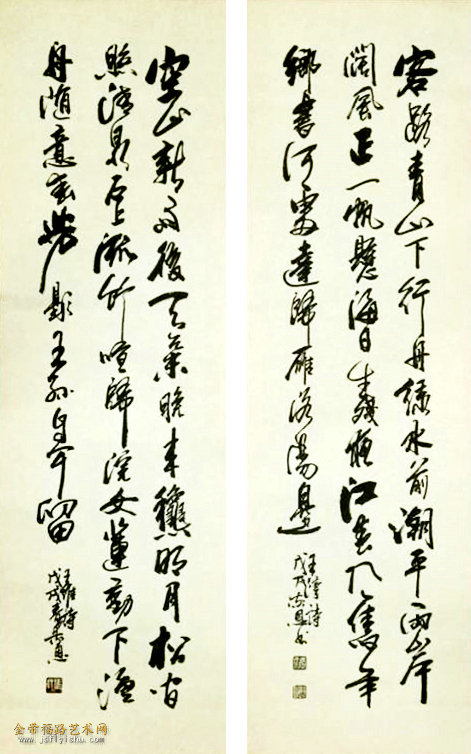 客路青山下行舟綠水前潮平兩岸
闊風正一帆懸海日生殘夜江春入舊年
鄉書何處達歸雁洛陽邊
王灣詩
戊戌
空山新雨後天氣晚來穐明月松間
照清泉石上流竹喧歸浣女蓮動下漁
舟隨意春芳歇王孫自可留
王維詩
戊戌
金带福路艺术网
www.jsflyishu.com